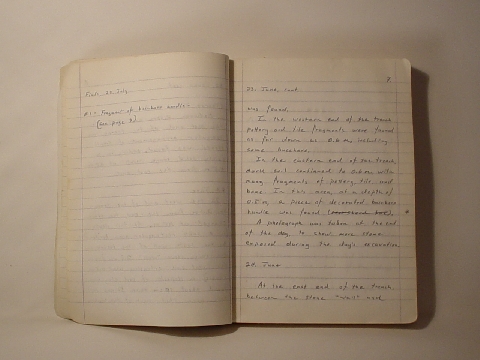 Finds 23 July
Fragment of bar-bone handle
(see page 8)
8
23. June, cont.
was found.
In the western end of the trench
pottery and tile fragments were found
as far down as 0.6 m including
some
In the eastern end of the trench,
dark soil continued to 0.6 m with
many fragments of pottery, tile and
bone. In this area, at a depth of
a piece of decorated
handle was found
A photograph was taken at the end
of the day, to show more stone
exposed during the day's excavation.
24. June
At the east end of the trench,
between the stone "wall" and